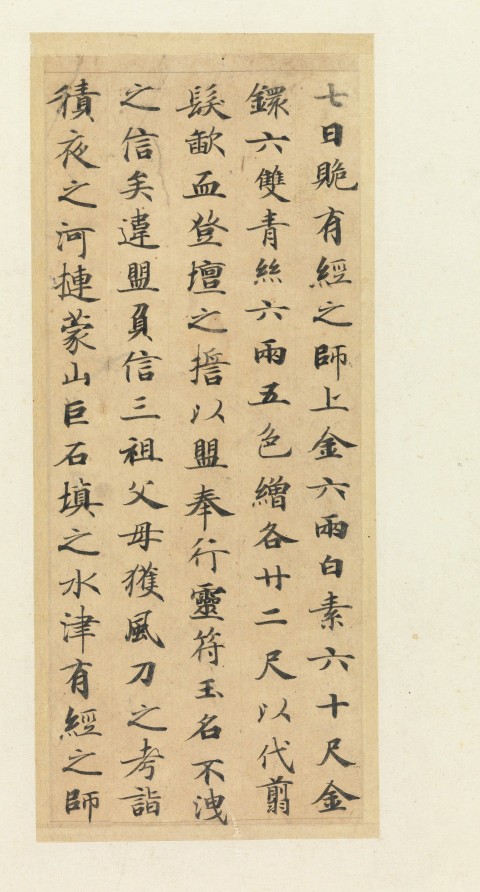 七日貤有經之師上金六兩白素六十尺金
鐶六雙青絲六兩五色繒各廿二尺以代翦
髮歃血登壇之誓以盟奉行靈符玉名不洩
之信矣違盟負信三祖父母獲風刀之考詣
積夜之河摙蒙山巨石填之水津有經之師